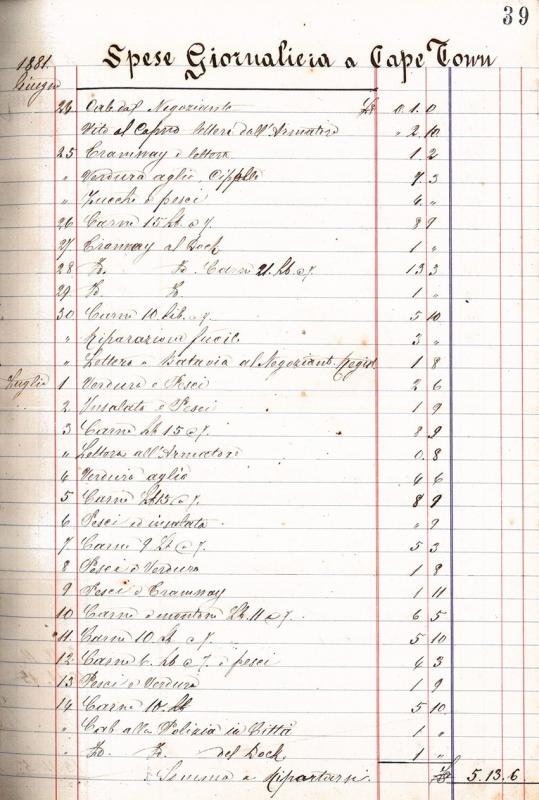 39
Spese Giornaliera a Cape Town
1881.
Giugno
24 Cab dal Negoziante £ 0. 1. 0
Vito al Capmo lettera dall'Armatore " 2. 10
25 Tramway e lettera 1 2
" Verdura aglio, Cipolle 7 3
" Zucche e pesci 4 "
26 Carne 15 Lb. @ 7. 8 9
27 Tramway al Dock 1 "
28 Do. Do. Carni 21. Lb @ 7. 13 3
29 Do Do 1 "
30 Carne 10 Lib. @ 7. 5 10
" Riparazione fucile 3 "
" Lettera a Batavia al Negoziant. Regist 1 8
Luglio 1 Verdura e Pesci 2 6
2 Insalata e Pesci 1 9
3 Carne Lb 15 @ 7. 8 9
" Lettera all'Armatore 0. 8
4 Verdura aglio 4 6
5 Carne Lb 15 @ 7. 8 9
6 Pesci ed insalata " 9
7. Carne 9 Lb @ 7. 5 3
8 Pesci e Verdura 1 8
9 Pesci e Tramway 1 11
10 Carne e montone Lb. 11 @ 7. 6 5
11. Carne 10. Lb @ 7. 5 10
12. Carne 6. Lb @ 7. e pesci 4 3
13 Pesci e Verdura 1 9
14 Carne 10. Lb 5 10
" Cab alla Polizia in Città 1 "
" Do. Do. del Dock 1 "
Somma a Riportarsi. £ 5. 13. 6.